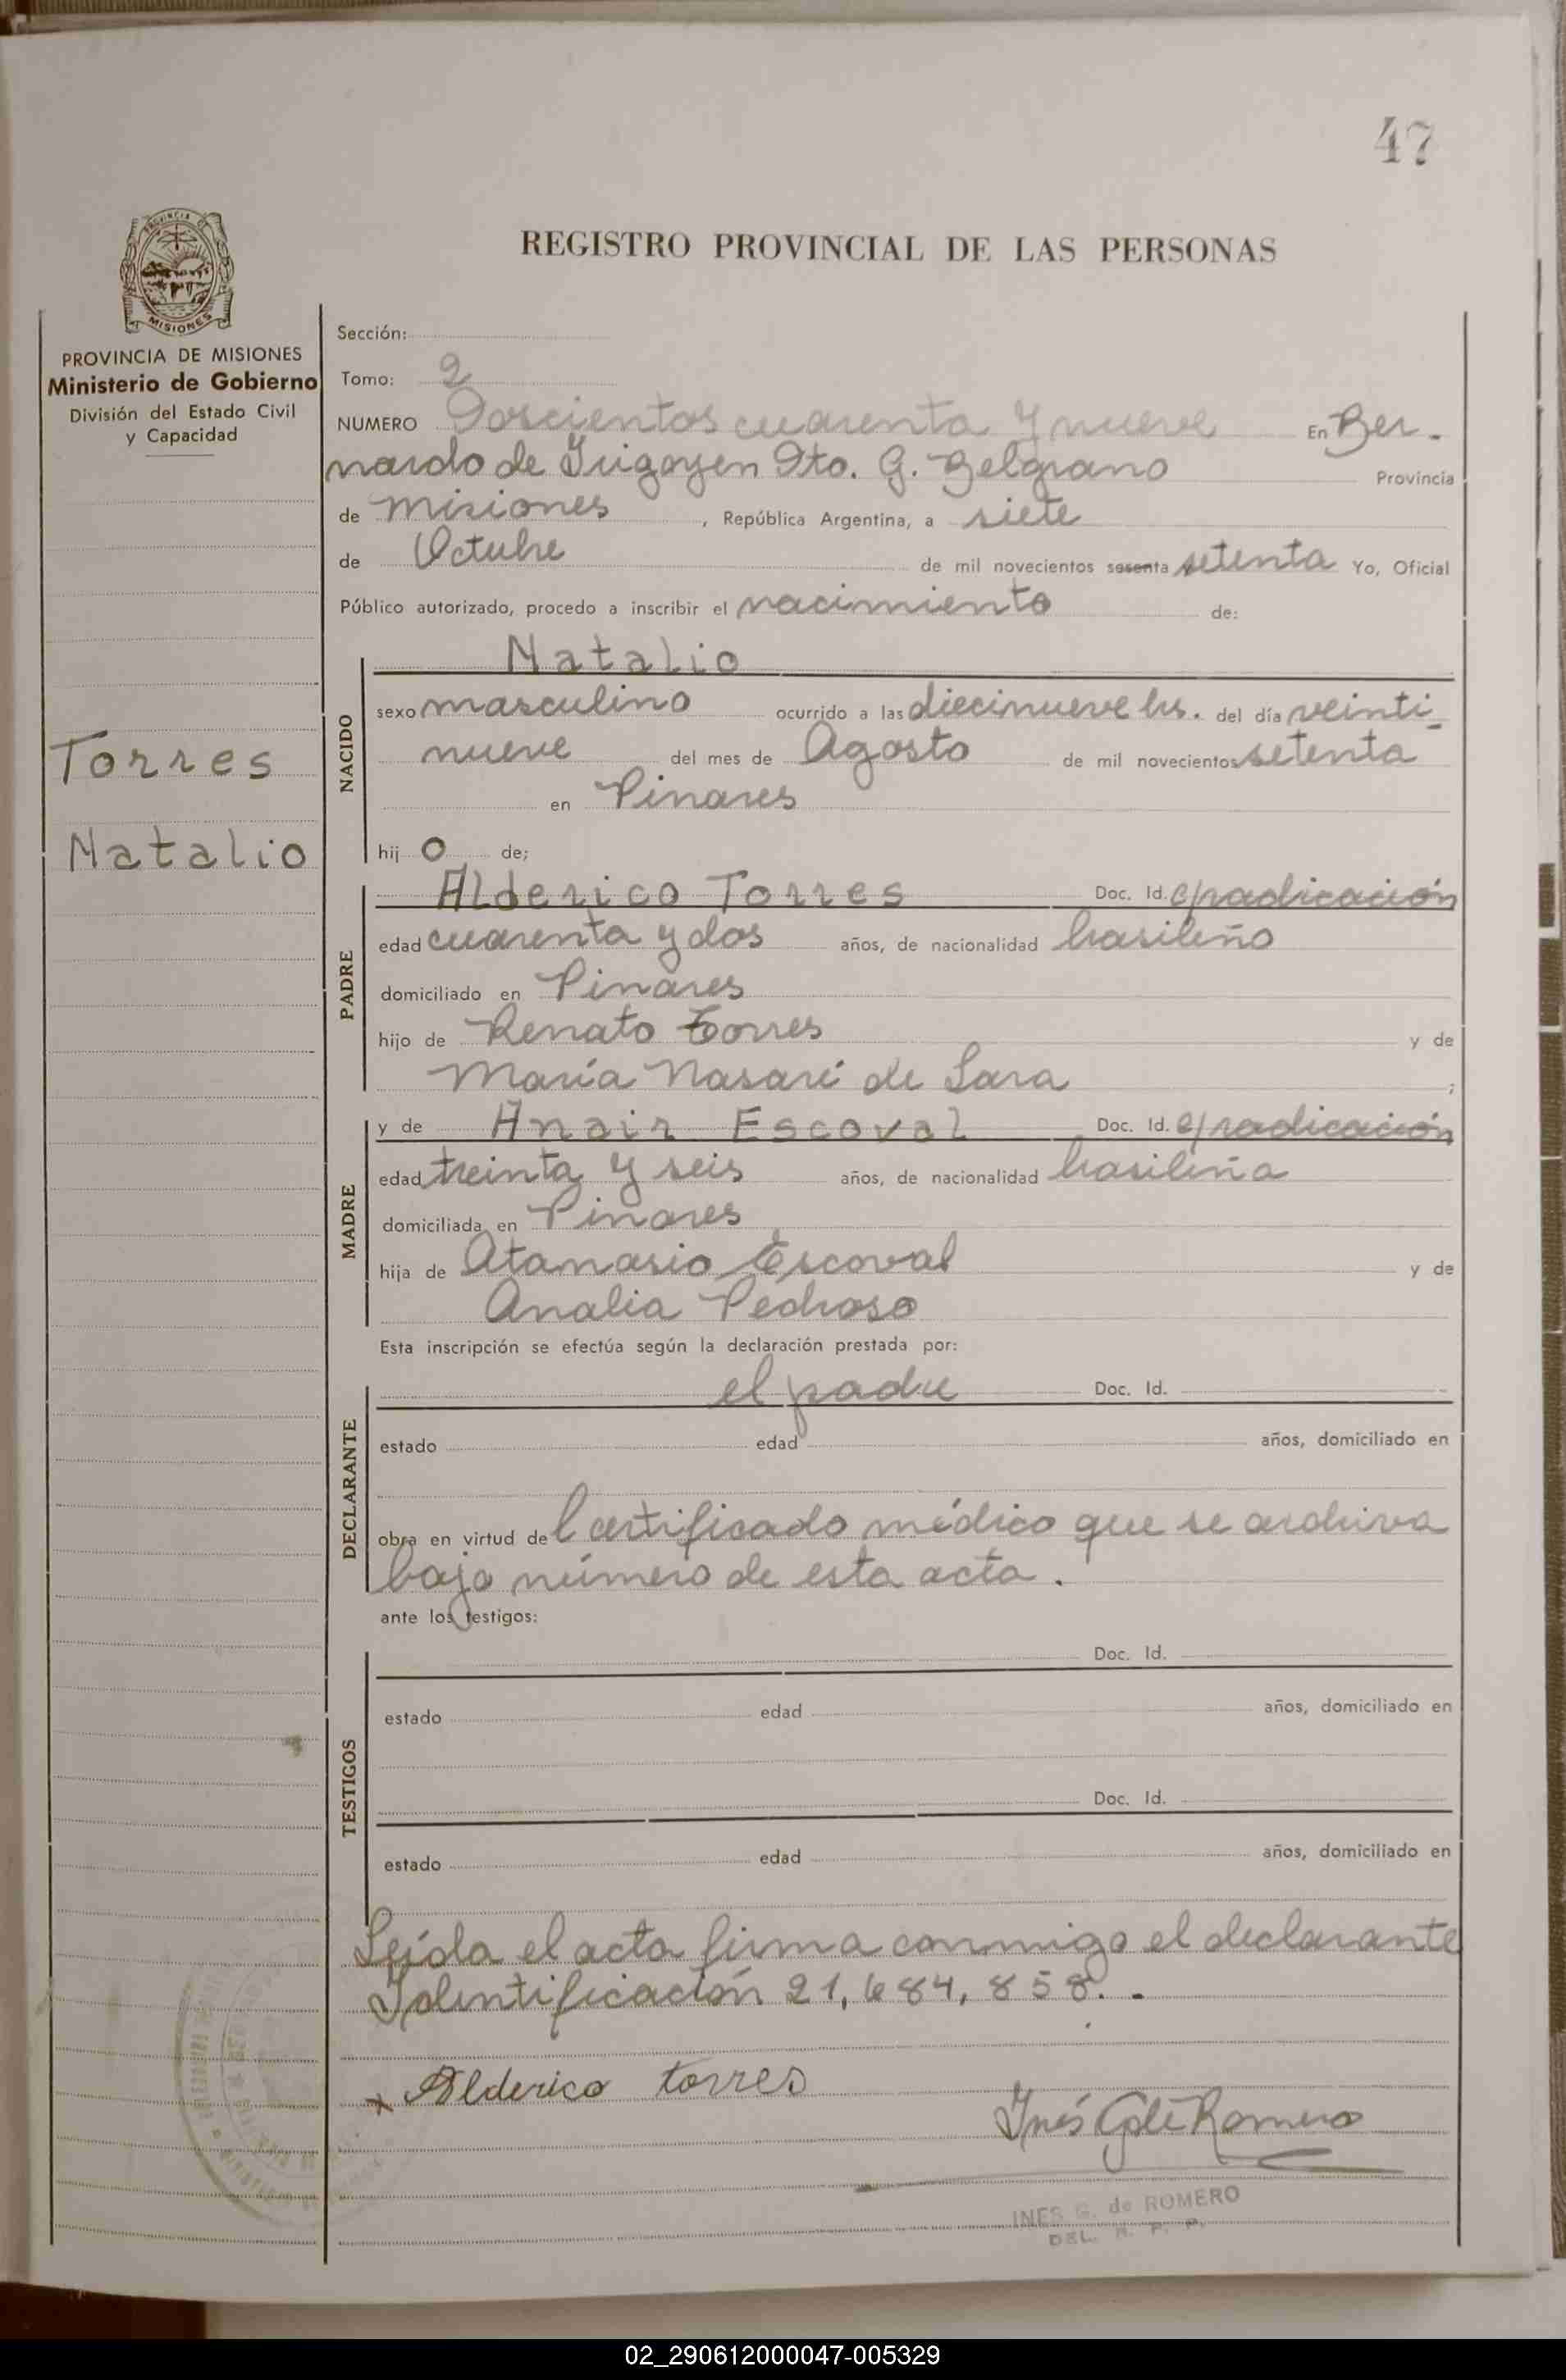 47
PROVINCIA
MISIONES
PROVINCIA DE MISIONES
Ministerio de Gobierno
División del Estado Civil
y Capacidad
Torres
Natalio
REGISTRO PROVINCIAL DE LAS PERSONAS
Sección:
Tomo: 2
NUMERO Doscientos cuarenta y nueve En Ber-
nardo de Irigoyen Dto. G. Belgrano Provincia
de Misiones, República Argentina, a siete
de Octubre de mil novecientos sesenta setenta Yo, Oficial
Público autorizado, procedo a inscribir el nacimiento de:
NACIDO
Natalio
sexo masculino ocurrido a las diecinueve hs. del día veinti-
nueve del mes de Agosto de mil novecientos setenta
en Pinares
hij o de;
PADRE
Alderico Torres Doc. Id. c/radicación
edad cuarenta y dos años, de nacionalidad brasileño
domiciliado en Pinares
hijo de Renato Torres y de
María Nasaré de Lara ;
MADRE
y de Anair Escoval Doc. Id. c/radicación
edad treinta y seis años, de nacionalidad brasileña
domiciliada en Pinares
hija de Atanasio Escoval y de
Analia Pedroso
Esta inscripción se efectúa según la declaración prestada por:
DECLARANTE
el padre Doc. Id.
estado edad años, domiciliado en
obra en virtud del certificado médico que se archiva
bajo número de esta acta.
ante los testigos:
TESTIGOS
Doc. Id.
estado edad años, domiciliado en
Doc. Id.
estado edad años, domiciliado en
Leída el acta firma conmigo el declarante
Identificación 21,684,858.-
x Alderico torres
Inés G de Romero
INES G. de ROMERO
DEL. R. P. P.
02_290612000047-005329